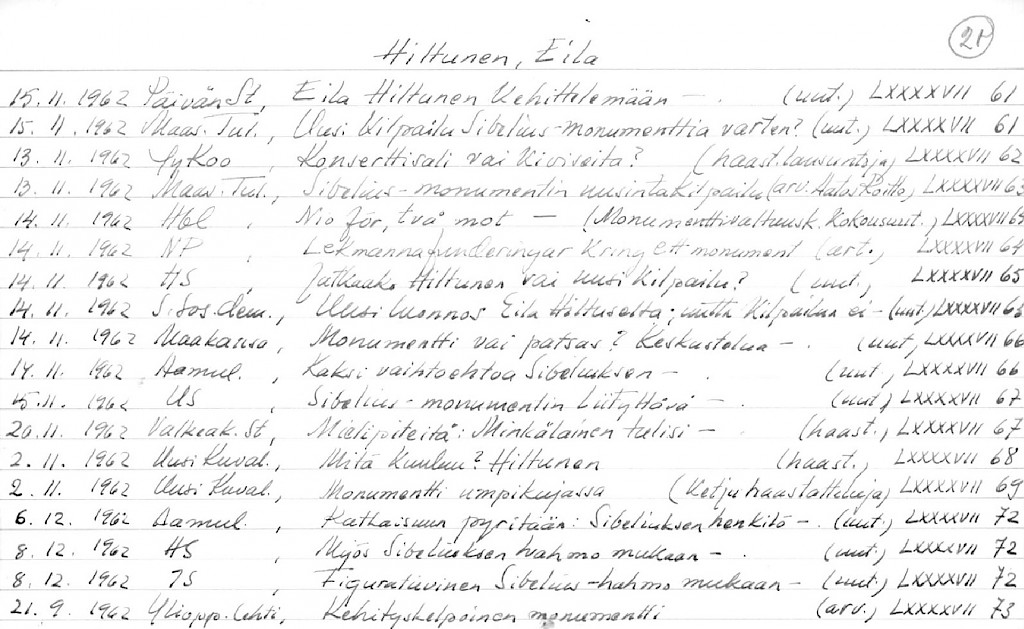 21
Hiltunen, Eila
15.11.1962 Päivän St, Eila Hiltunen kehittelemään - . (uut.) LXXXXVII 61
15.11.1962 Maas. Tul., Uusi kilpailu Sibelius-monumenttia varten? (uut.) LXXXXVII 61
13.11.1962 Konserttisali vai kiviseitä? (haast. lausuntoja) LXXXXVII 62
13.11.1962 Maas. Tul., Sibelius-monumentin uusintakilpailu (arv. LXXXXVII 63
14.11.1962 Hbl , Nio för, två mot - (Monumenttivaltuusk. kokousuut.) LXXXXVII 64
14.11.1962 NP , Lekmannafunderingar kring ett monument (art.) LXXXXVII 64
14.11.1962 HS , Jatkaako Hiltunen vai uusi kilpailu? (uut., LXXXXVII 65
14.11.1962 S. Sos. dem., Uusi luonnos Eila Hiltuselta; mutta kilpailua ei - (uut.) LXXXXVII 66
14.11.1962 Maakansa, Monumentti vai patsas? Keskustelua - . (uut, LXXXXVII 66
14.11.1962 Aamul. , Kaksi vaihtoehtoa Sibeliuksen - . (uut., LXXXXVII 66
15.11.1962 US , Sibelius-monumentin liityttävä - . (uut.) LXXXXVII 67
20.11.1962 Valkeak. St, Mielipiteitä: Minkälainen tulisi - . (haast., LXXXXVII 67
2.11.1962 Uusi Kuval., Mitä kuuluu? Hiltunen (haast., LXXXXVII 68
2.11.1962 Uusi Kuval., Monumentti umpikujassa (ketjuhaastatteluja) LXXXXVII 69
6.12.1962 Aamul. , Ratkaisuun pyritään: Sibeliuksen henkilö - . (uut.) LXXXXVII 72
8.12.1962 HS , Myös Sibeliuksen hahmo mukaan - . (uut.) LXXXXVII 72
8.12.1962 IS , Figuratiivinen Sibelius-hahmo mukaan - (uut.) LXXXXVII 72
21.9.1962 Yliopp. lehti, Kehityskelpoinen monumentti (arv.) LXXXXVII 73